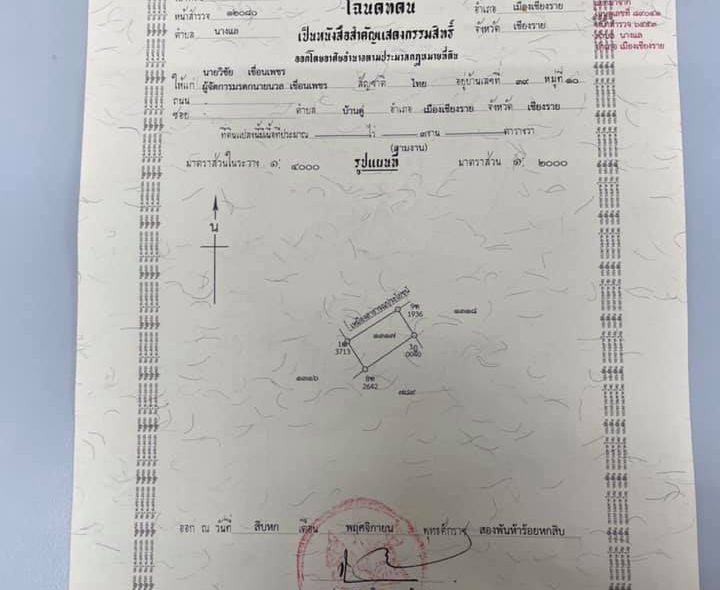 โฉนดที่ดิน
หน้าสำรวจ ๑๒๐๘๐
อำเภอ เมืองเชียงราย
ตำบล นางแล
เป็นหนังสือสำคัญแสดงกรรมสิทธิ์
จังหวัด เชียงราย
ออกโดยอาศัยอำนาจตามประมวลกฎหมายที่ดิน
อำเภอ เมืองเชียงราย
นายวิชัย เขื่อนเพชร
ให้แก่ ผู้จัดการมรดกนายนวล เขื่อนเพชร สัญชาติ ไทย อยู่บ้านเลขที่ ๓๙ หมู่ที่ ๑๐
ถนน -
ซอย - ตำบล บ้านดู่ อำเภอ เมืองเชียงราย จังหวัด เชียงราย
ที่ดินแปลงนี้มีเนื้อที่ประมาณ - ไร่ ๓ งาน - ตารางวา
(สามงาน)
มาตราส่วนในระวาง ๑: ๔๐๐๐ รูปแผนที่ มาตราส่วน ๑: ๒๐๐๐
น
เหมืองสาธารณประโยชน์
1936
๑๓๑๘
๑๓๑๗
3713
0040
๑๓๑๖
2642
๗๘๙
ออก ณ วันที่ สิบหก เดือน พฤศจิกายน พุทธศักราช สองพันห้าร้อยหกสิบ